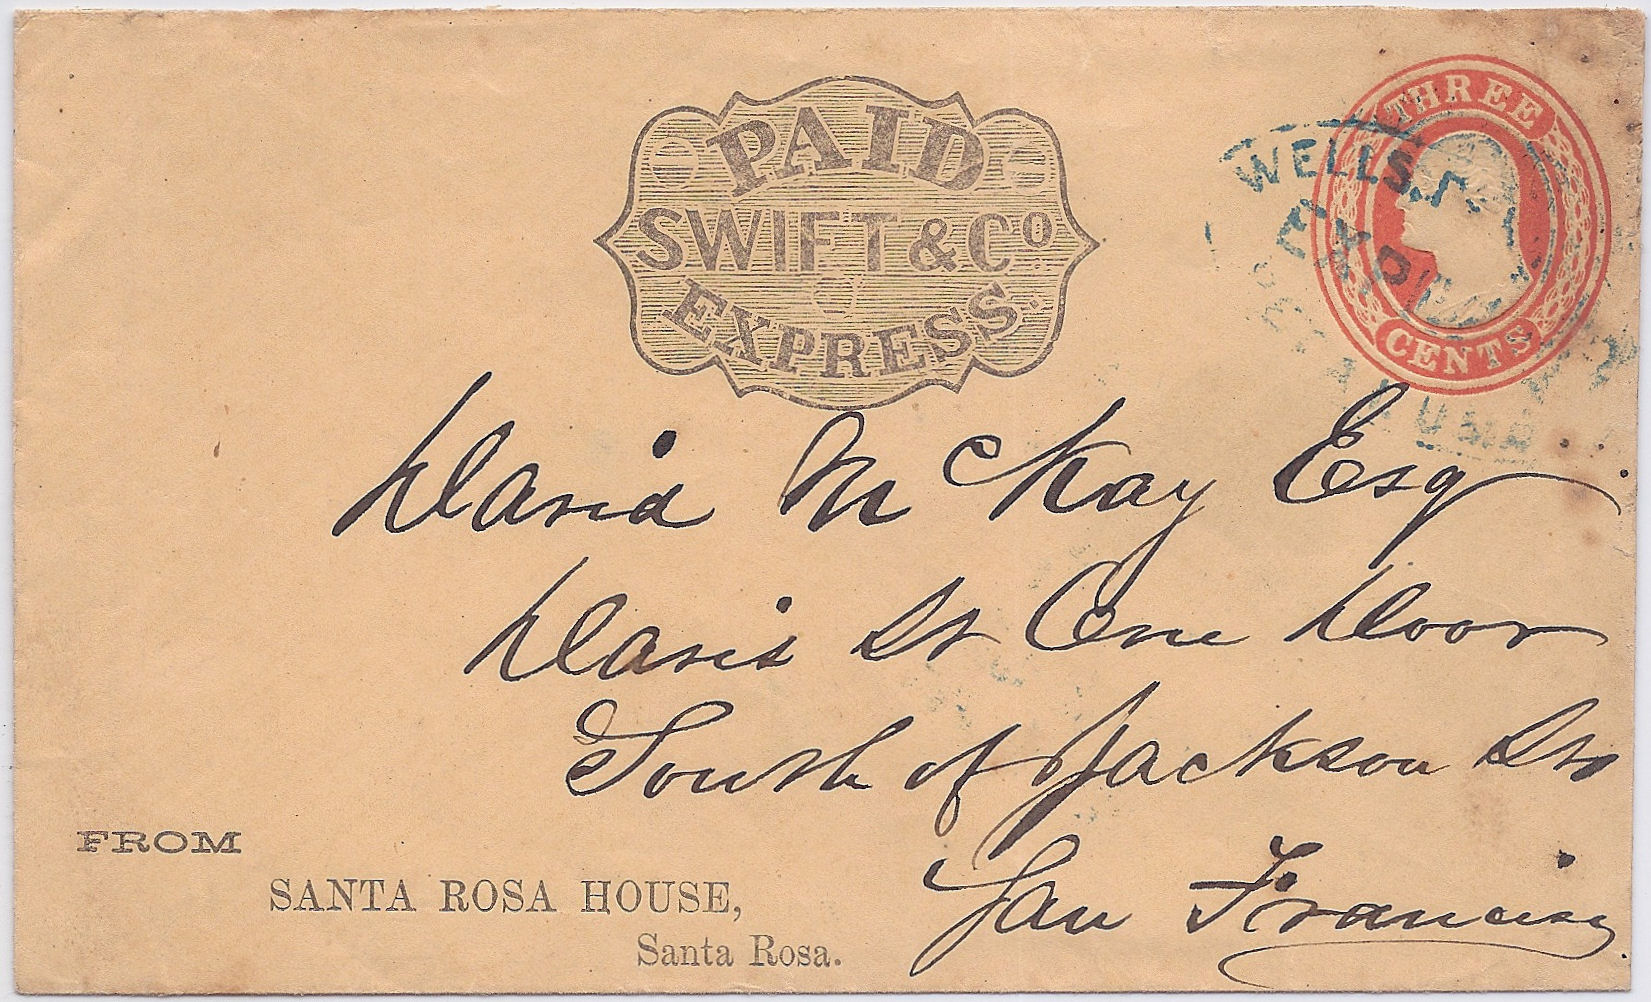 PAID
SWIFT & Co
EXPRESS.
THREE
CENTS
WELLS, F
EXP
David McKay Esq
Davis St One Door
South of Jackson St
San Francisco
FROM
SANTA ROSA HOUSE,
Santa Rosa.